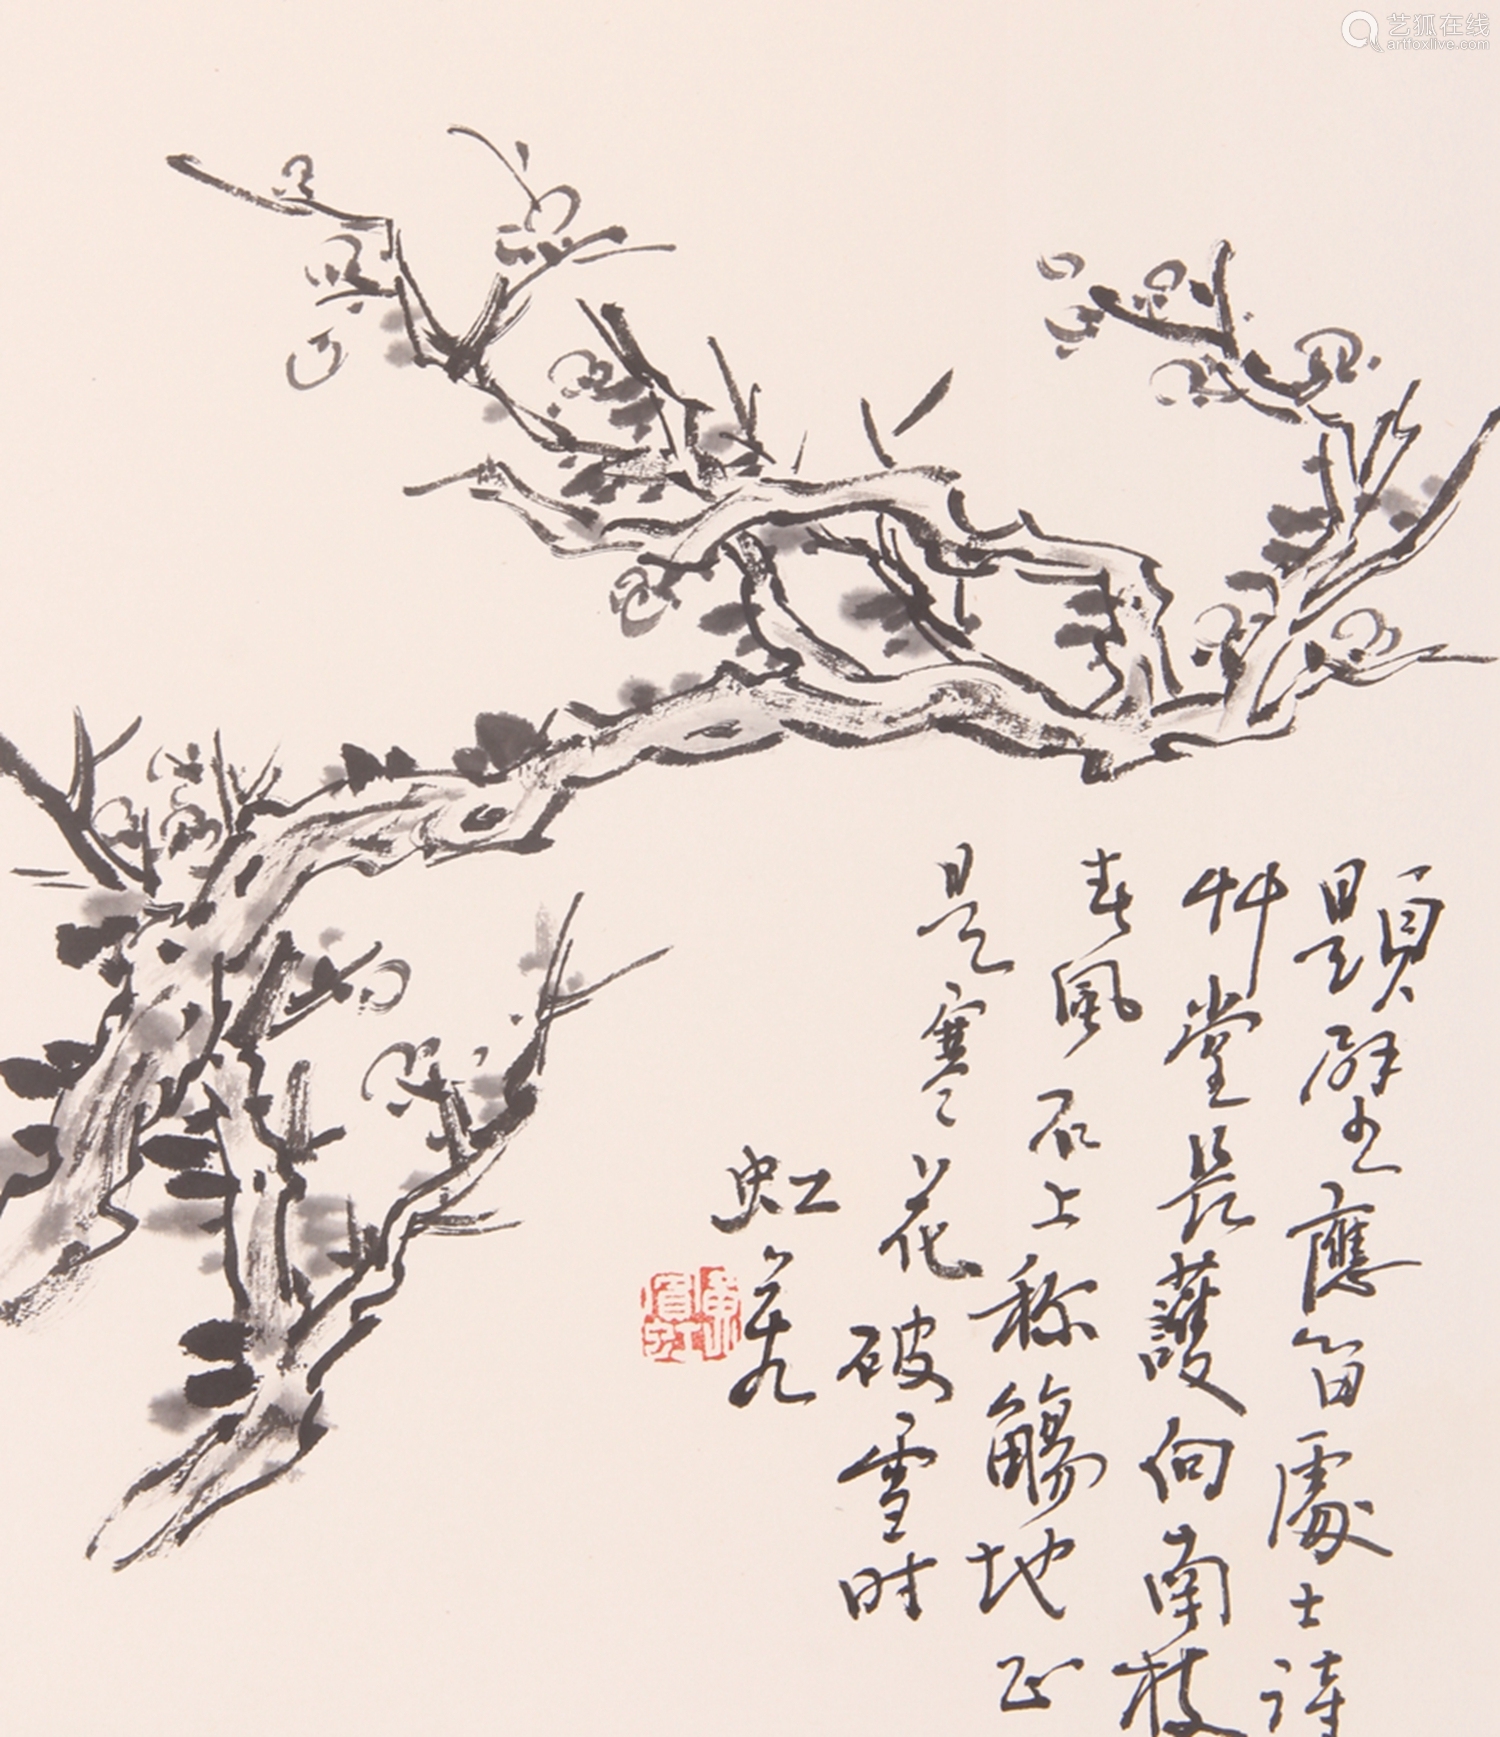 艺狐在线
artfoxlive.com
題壁應留處士詩
艸堂長護向南枝
春風石上称觴地正
是寒花破雪时
虹若
黄山
賓虹